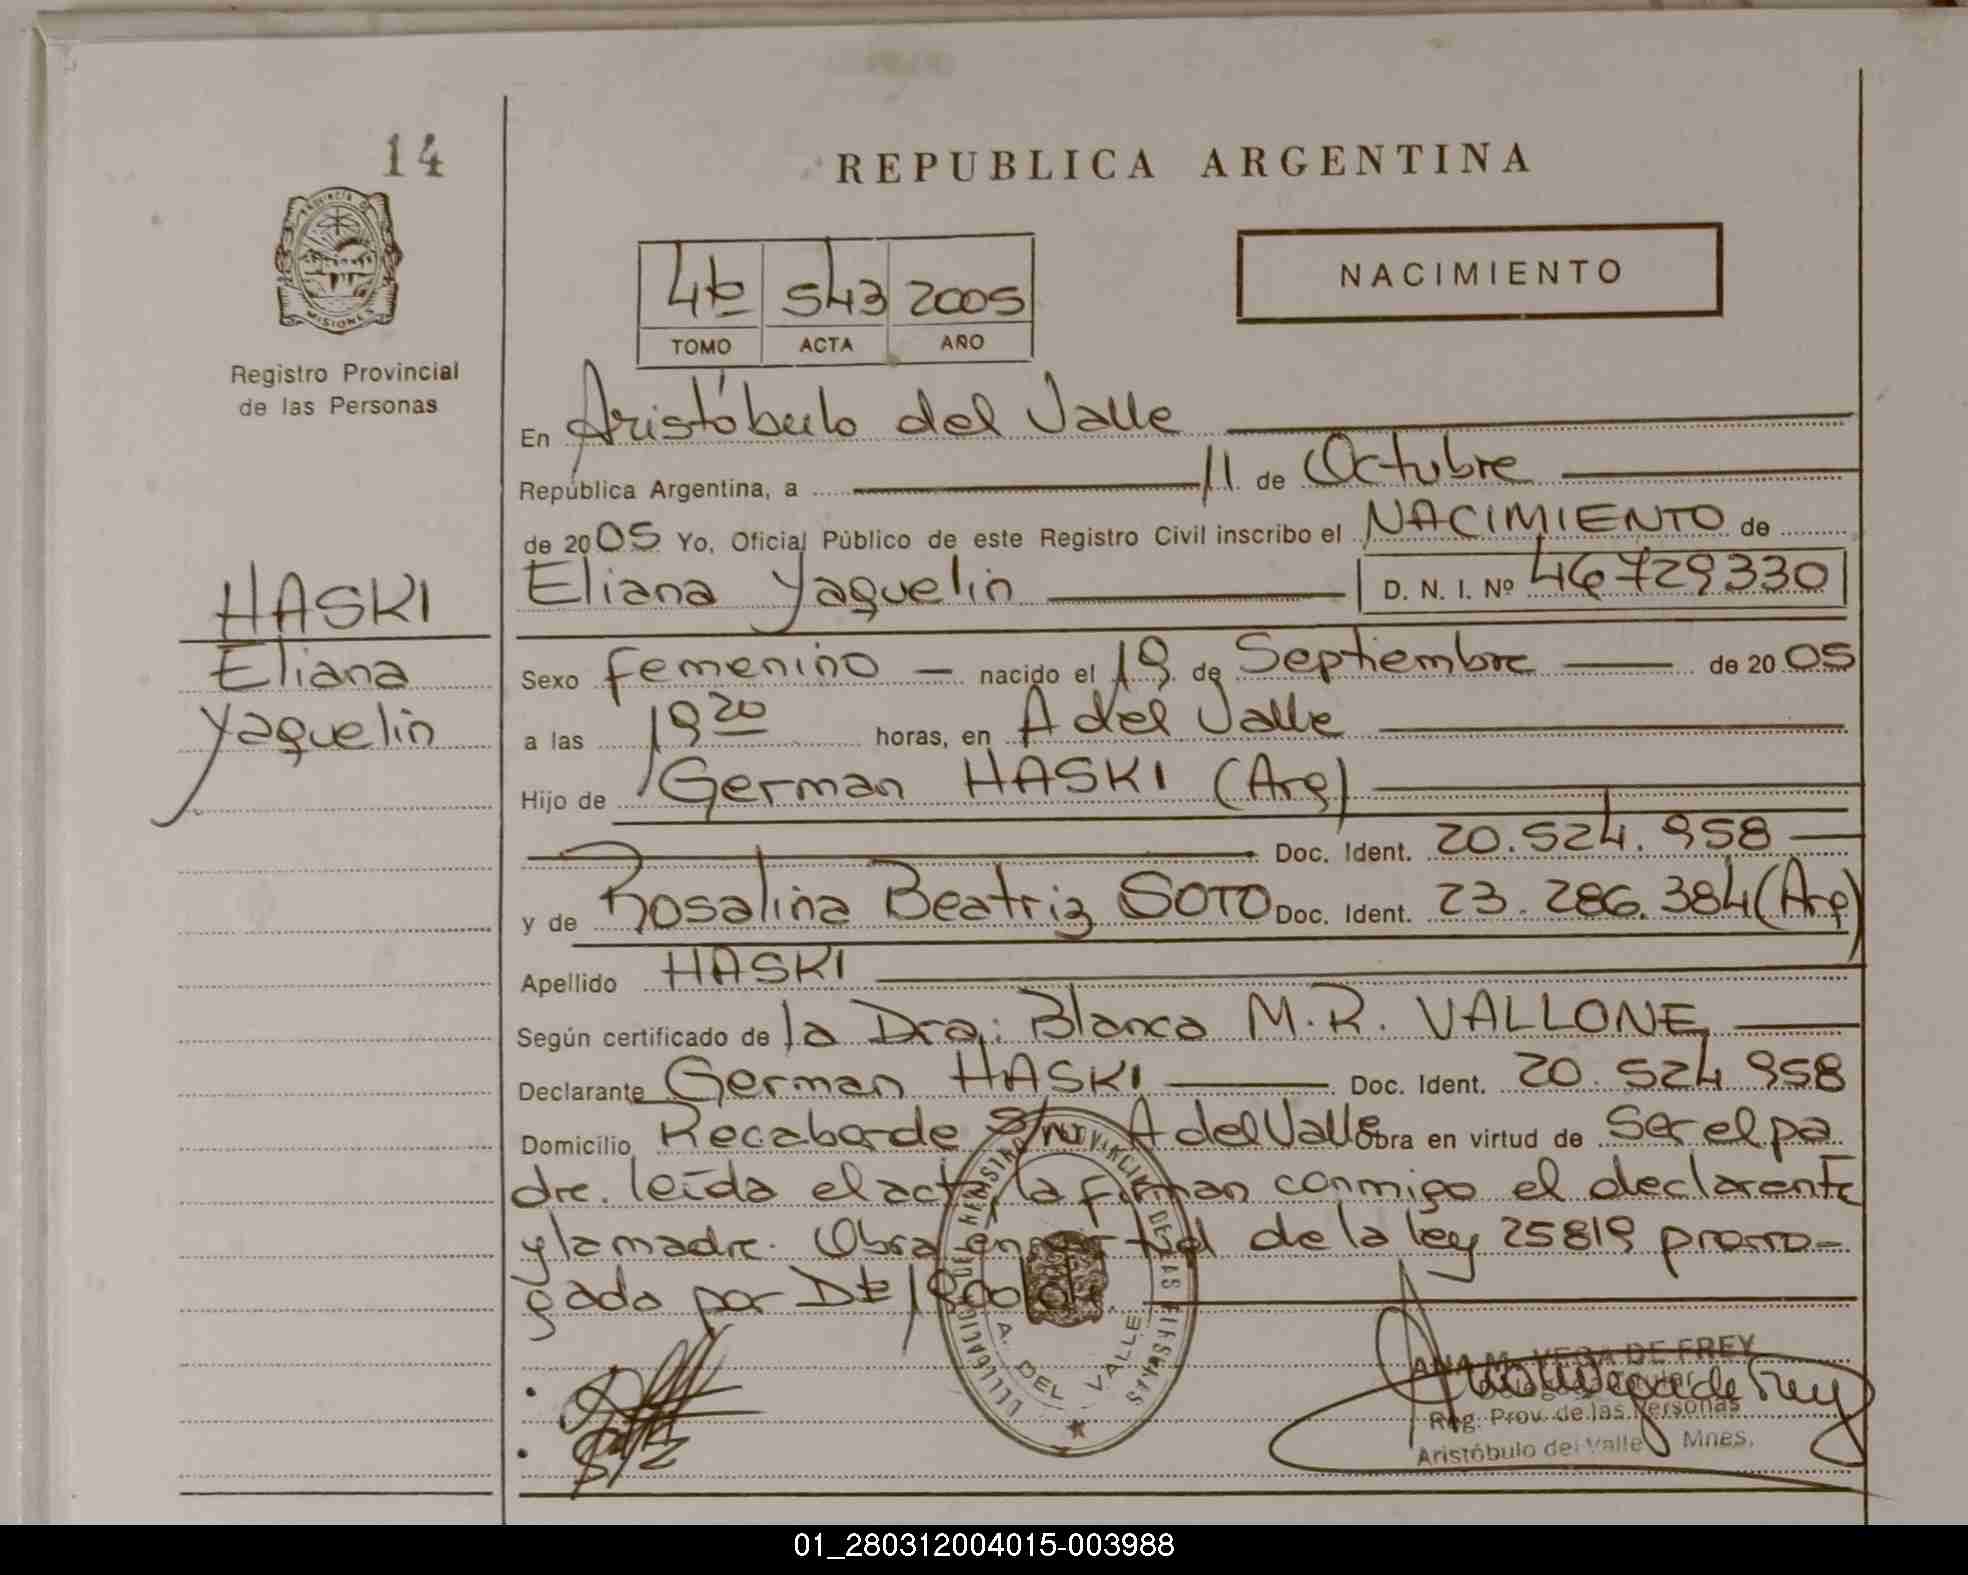 14
REPUBLICA ARGENTINA
PROVINCIA DE
MISIONES
Registro Provincial
de las Personas
NACIMIENTO
4to 543 2005
TOMO ACTA AÑO
En Aristóbulo del Valle
República Argentina, a 11 de Octubre
de 2005 Yo, Oficial Público de este Registro Civil inscribo el NACIMIENTO de
Eliana Yaquelin D. N. I. Nº 46729330
HASKI
Eliana
Yaquelin
Sexo femenino — nacido el 19 de Septiembre de 2005
a las 19 20 horas, en A del Valle
Hijo de German HASKI (Arg)
Doc. Ident. 20.524.958
y de Rosalina Beatriz SOTO Doc. Ident. 23.286.384 (Arg)
Apellido HASKI
Según certificado de la Dra: Blanca M.R. VALLONE
Declarante German HASKI Doc. Ident. 20.524.958
Domicilio Recaborde s/nº A del Valle Obra en virtud de ser el pa
dre. leída el acta, la firman conmigo el declarante
y la madre. Obra en virtud de la ley 25819 prorro-
gado por Dto
A. DEL VALLE
ANA M. VEGA DE FREY
Reg. Prov. de las Personas
Aristóbulo del Valle Mnes.
01_280312004015-003988